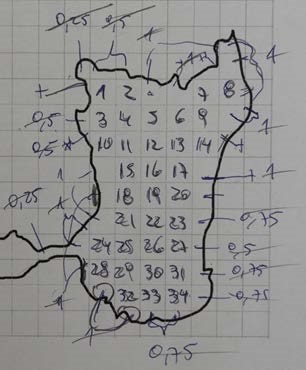 0,25 0,5 1
1 2 7 8 1
0,5 3 4 5 6 9 1
0,5 10 11 12 13 14
1 15 16 17 1
0,25 18 19 20
21 22 23 0,75
24 25 26 27 0,5
28 29 30 31 0,75
1 32 33 34 0,75
0,75